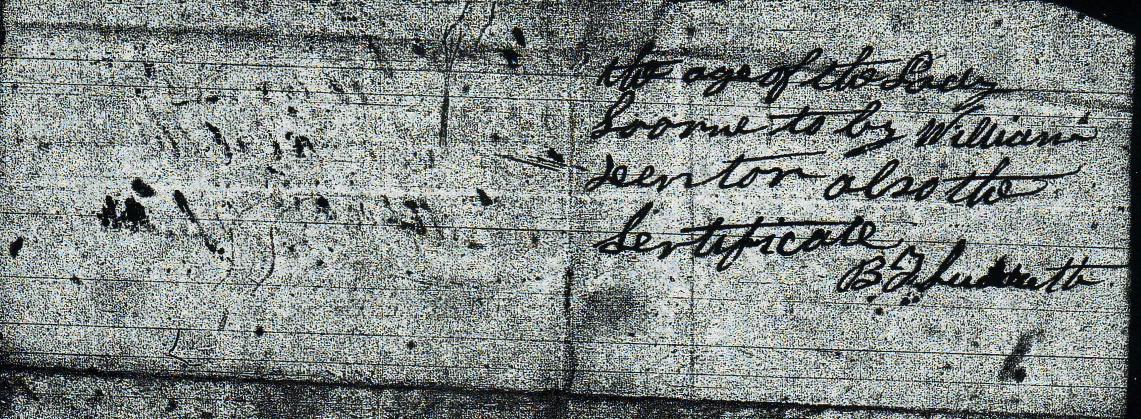 the age of the Lady
Soorne to by William
Denton also the
Sertificate
B F